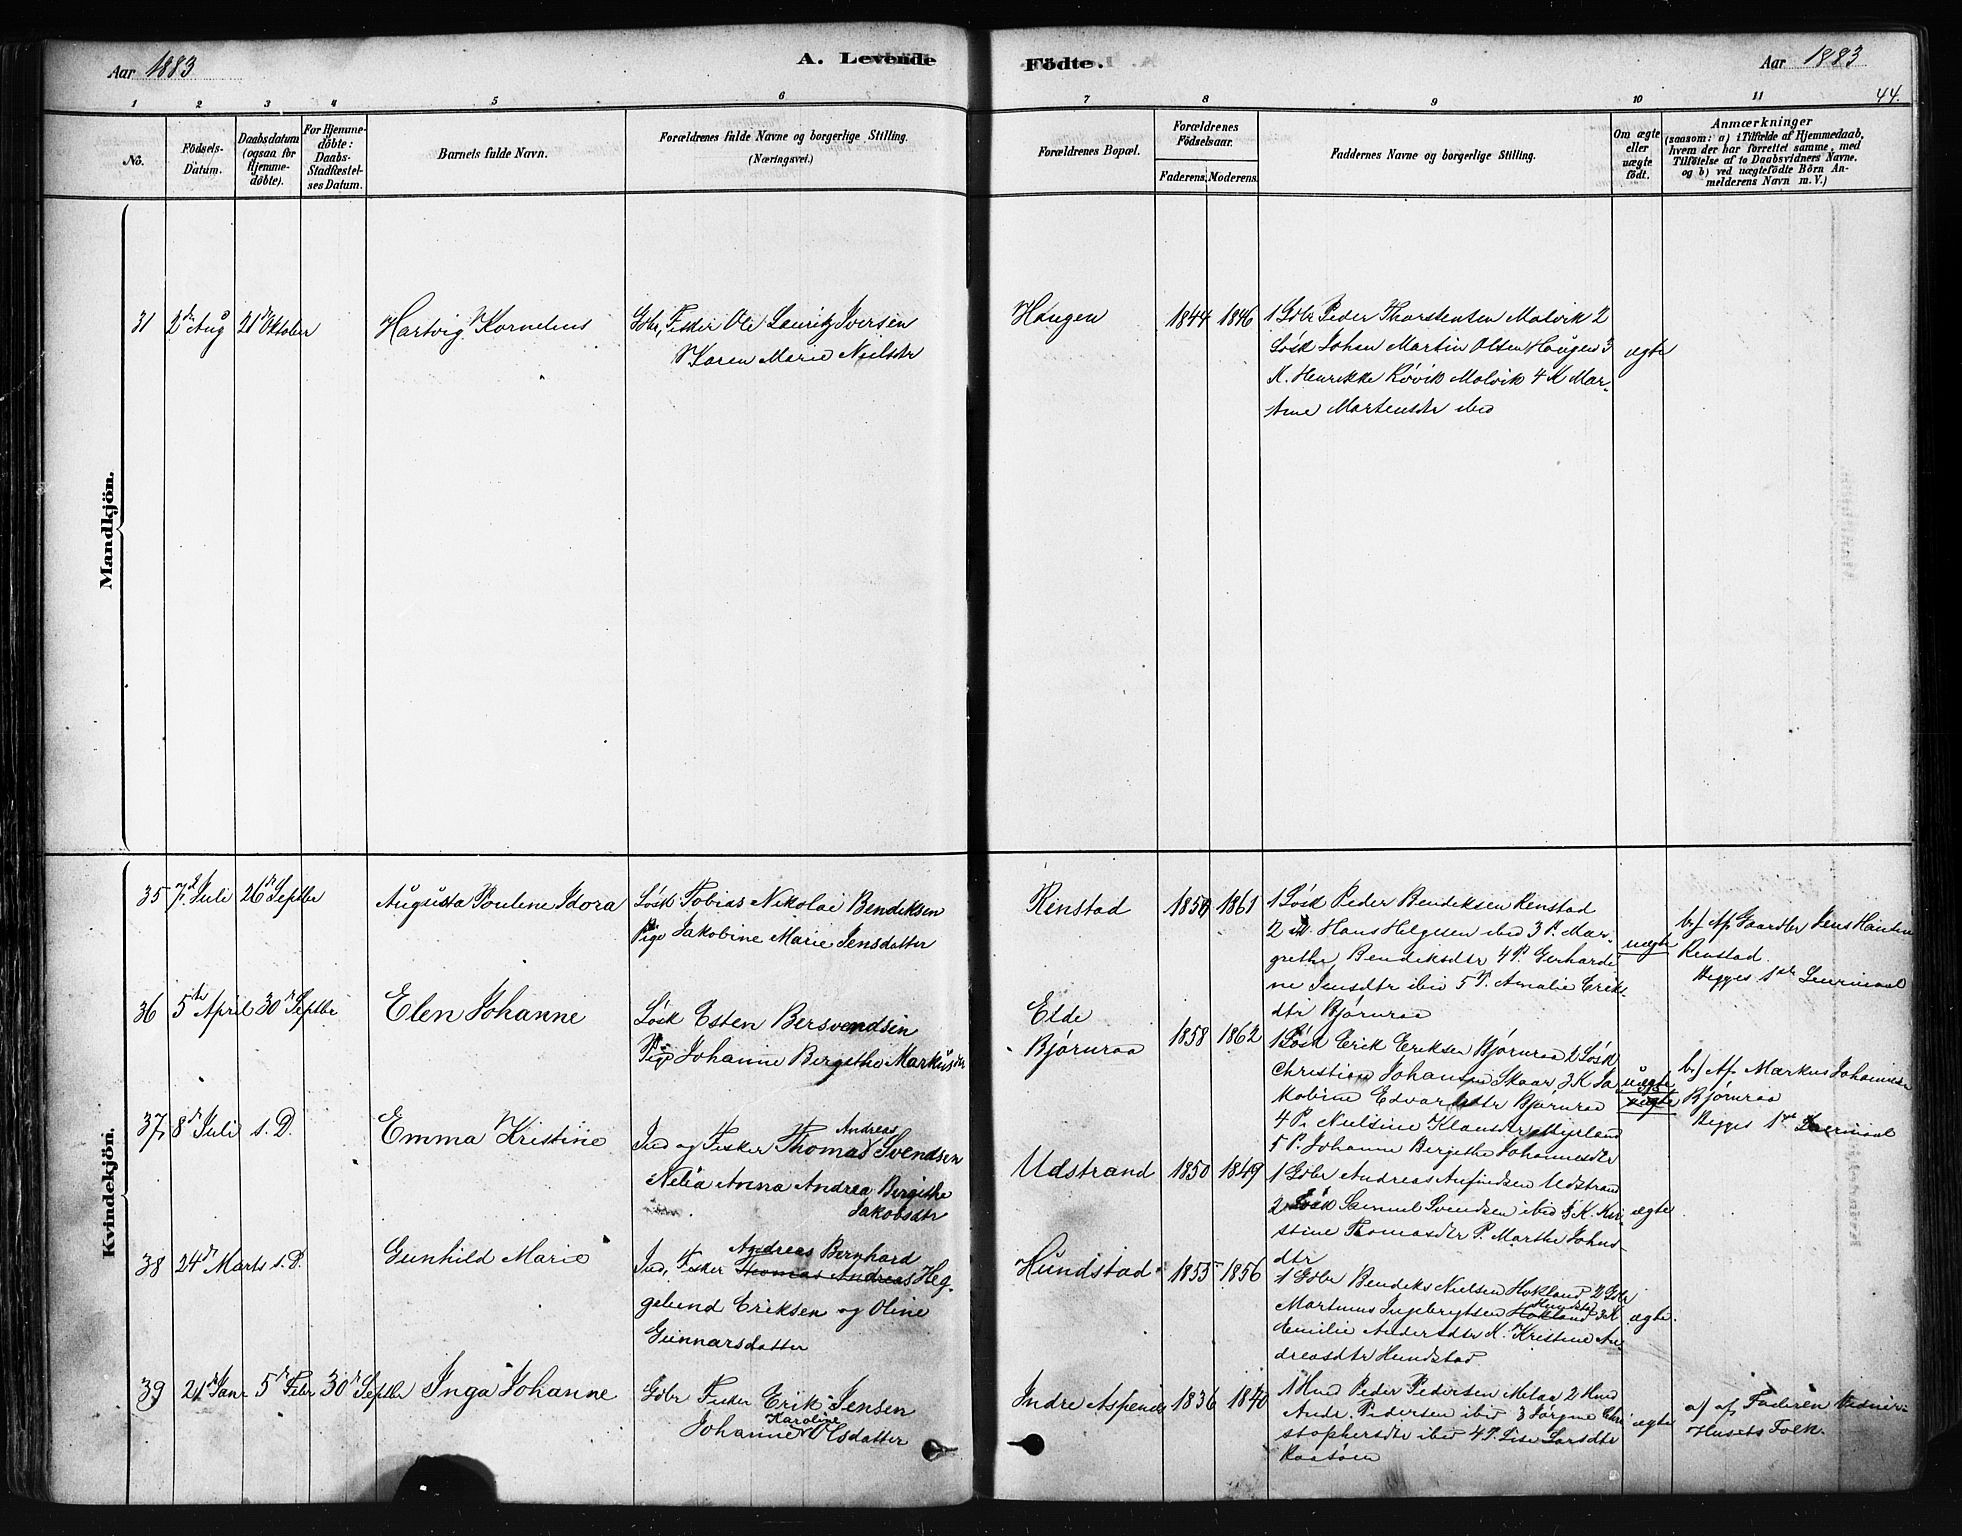 Aar 1883
A. Levende
Födte.
Aar 1883
44.
1 2 3 4 5 6 7 8 9 10 11
No.
Födsels-
Datum.
Daabsdatum
(ogsaa for
Hjemme-
döbte).
For Hjemme-
döbte:
Daabs-
Stadfæstel-
ses Datum.
Barnets fulde Navn.
Forældrenes fulde Navne og borgerlige Stilling.
(Næringsvei.)
Forældrenes Bopæl.
Forældrenes
Födselsaar.
Faderens. Moderens.
Faddernes Navne og borgerlige Stilling.
Om ægte
eller
uægte
födt.
Anmærkninger
(saasom: a) i Tilfælde af Hjemmedaab,
hvem der har forrettet samme, med
Tilföielse af to Daabsvidners Navne.
og b) ved uægtefödte Börn An-
melderens Navn m. V.)
Mandkjön.
31 2den Aug 21de Oktober
Hartvig Kornelius
Gbr, Fisker Ole Lauritz Iversen
Karen Marie Nielsdtr
Haugen
1844 1846
1 Gbr Peder Thorstensen Molvik 2
Løsk Johan Martin Olsen Haugen 3
K. Henrikke Røvik Molvik 4 K Mar-
tine Martensdtr ibid
ægte
Kvindekjön.
35 7d Juli 26de Septbr
Augusta Pouline Idora
Løsk Tobias Nikolai Bendiksen
Pige Jakobine Marie Jensdatter
Rinstad
1850 1861
1 Løsk Peder Bendiksen Renstad
2 Hans Helgesen ibid 3 P. Mar-
grethe Bendiksdtr 4 P. Gerhardi
ne Jensdtr ibid 5 P. Amalie Eriks-
dtr Bjørnraa
uægte
b) Af Gaardbr Jens Hansen
Renstad.
Begges 1ste Leiermaal
36 5te April 30de Septbr
Elen Johanne
Løsk Esten Bersvendsen
Pige Johanne Bergithe Markusdtr
Elde
Bjørnraa
1858 1862
1 Løsk Erik Eriksen Bjørnraa 2 Løsk
Christian Johansen Skaar 3 K Ja
kobine Edvardsdtr Bjørnraa
4 P. Nielsine Klausdtr Myrland
5 P. Johanne Bergithe Johannesdtr
uægte
b) Af Markus Johannesen
Bjørnraa
Begges 1ste Leiermaal
37 8de Juli s. D.
Emma Kristine
Ind og Fisker Thomas Andreas Svendsen
Nelia Anna Andrea Bergithe
Jakobsdtr
Udstrand
1850 1849
1 Gbr Andreas Anfindsen Udstrand
2 Løsk Samuel Svendsen ibid 3 K. Kri-
stine Thomasdtr P. Marthe Johns-
dtr
ægte
38 24de Marts s. D.
Gunhild Marie
Andreas Bernhard
Ind, Fisker Thomas Andreas Heg-
gelund Eriksen og Oline
Gunnarsdatter
Hundstad
1855 1856
1 Gbr Bendiks Nielsen Hokland 2 Gbr
Martinus Ingebrigtsen Hokland Hundstad 3 K
Emilie Andersdtr K. Kristine An-
dreasdtr Hundstad
ægte
39 21de Janr 5te Febr 30de Septbr
Inga Johanne
Gbr Fisker Erik Jensen
Johanne Karoline Olsdatter
Indre Aspenes
1836 1840
1 Hmd Peder Pedersen Melaa 2 Hmd
Andr. Pedersen ibid 3 Jørgine Chri
stophersdtr ibid 4 P. Lise Larsdtr
ægte
a) af Faderen Vidner
Husets Folk.